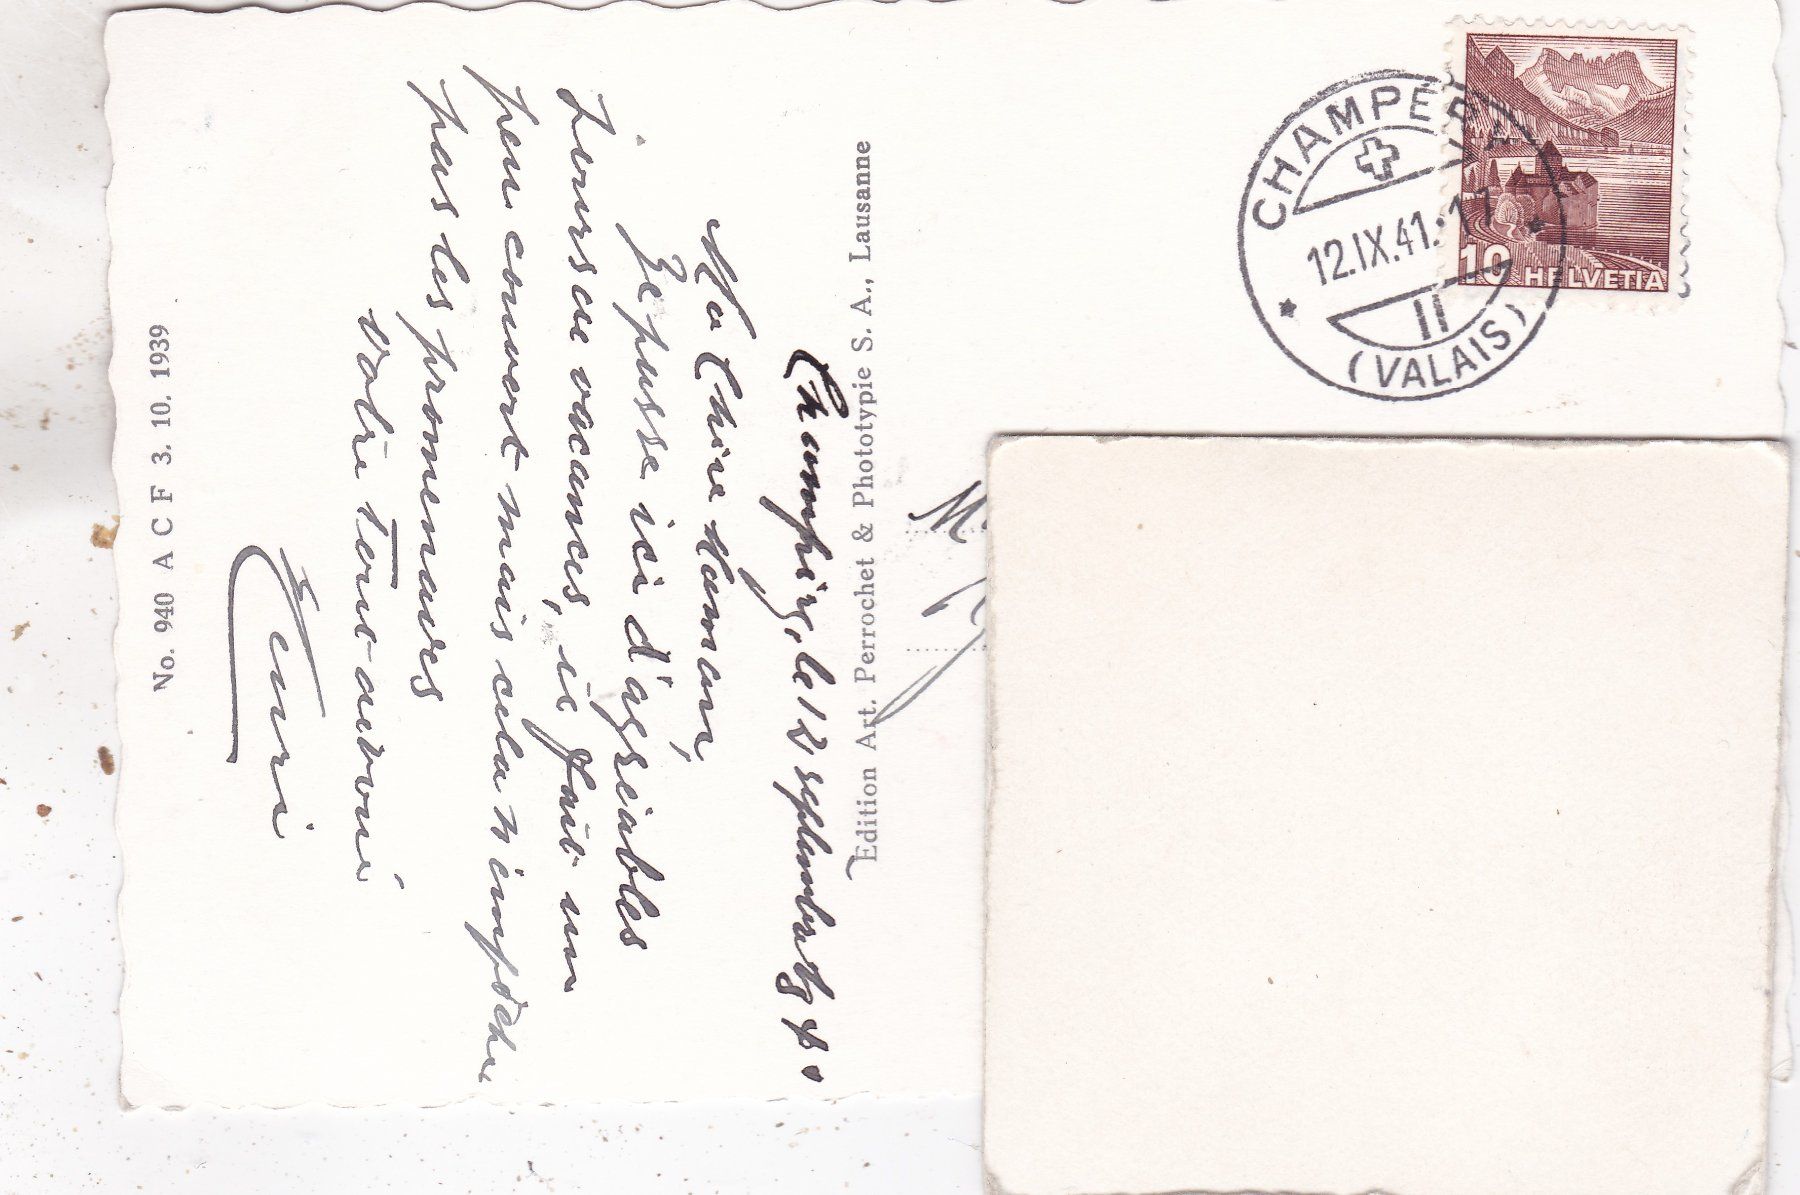 Champéry, le 12 septembre
Ma Chère Maman,
Je passe ici d'agréables
jours de vacances, il fait un
peu couvert mais cela n'empêche
pas les promenades
Votre tout dévoué
Henri
No. 940 A C F 3. 10. 1939
Edition Art. Perrochet & Phototypie S. A., Lausanne
CHAMPÉRY
12.IX.41.-17
II
(VALAIS)
10 HELVETIA